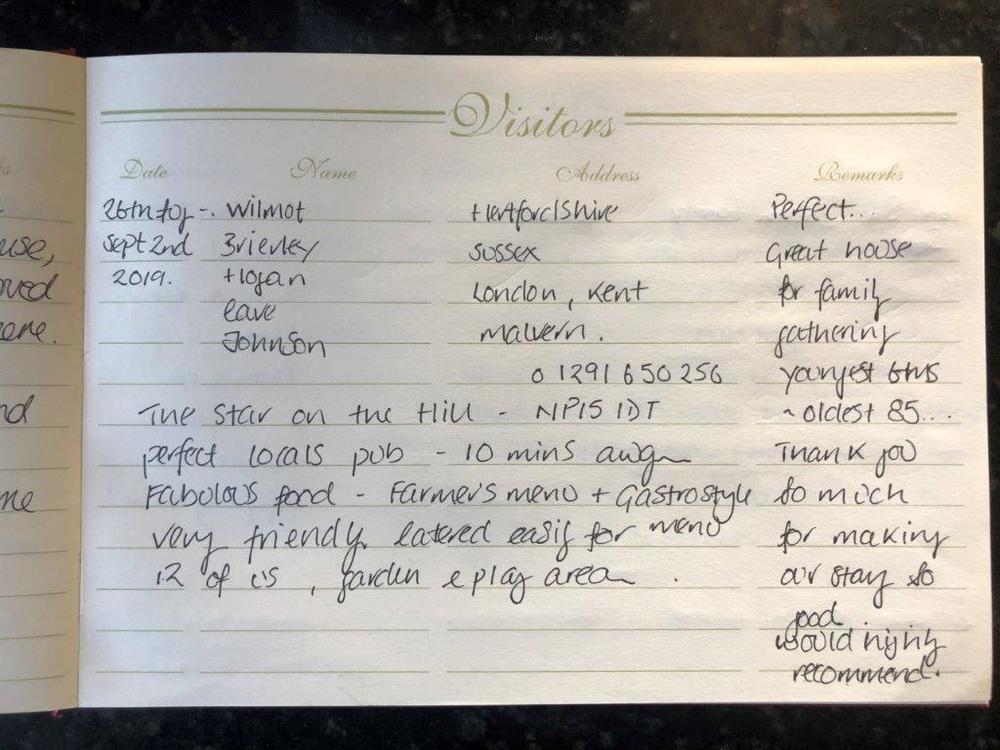 Visitors
Date Name Address Remarks
Wilmot Hertfordshire Perfect...
Sept 2nd Brierley Sussex Great house
2019. + Logan London, Kent for family
Cave Malvern. gathering
Johnson
01291 650256 youngest 6mths
The Star on the Hill - NP15 1DT ~ oldest 85...
perfect locals pub - 10 mins away Thank you
Fabulous food - Farmer's menu + Gastrostyle menu so much
very friendly. Catered easily for for making
12 of us, garden & play area. our stay so
good
would highly
recommend.
use,
oved
ere.
nd
me